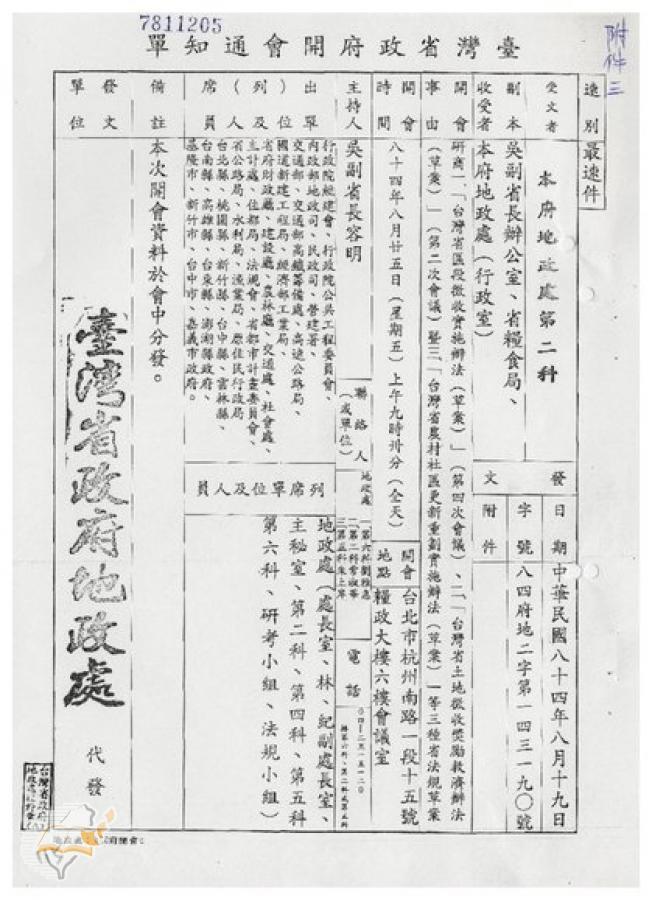 7811205
附件三
臺灣省政府開會通知單
速別
最速件
受文者
本府地政處第二科
副本收受者
吳副省長辦公室、省糧食局、
本府地政處（行政室）
發文
日期
中華民國八十四年八月十九日
字號
八四府地二字第一四三一九〇號
附件
開會事由
研商一、「台灣省區段徵收實施辦法（草案）」（第四次會議）、二、「台灣省土地徵收獎勵救濟辦法
（草案）」（第二次會議）暨三、「台灣省農村社區更新重劃實施辦法（草案）」等三種省法規草案
開會時間
八十四年八月廿五日（星期五）上午九時卅分（全天）
開會地點
台北市杭州南路一段十五號
糧政大樓六樓會議室
主持人
吳副省長容明
聯絡人
（或單位）
地政處
電話
出（列）席單位及人員
行政院經建會、行政院公共工程委員會、
內政部地政司、民政司、營建署、
交通部、交通部高鐵籌備處、高速公路局、
國道新建工程局、經濟部工業局、
省府財政廳、建設廳、農林廳、交通處、社會處、
主計處、住都局、法規會、省都市計畫委員會、
省公路局、水利局、漁業局、原住民行政局
台北縣、桃園縣、新竹縣、台中縣、雲林縣、
台南縣、高雄縣、台東縣、澎湖縣政府、
基隆市、新竹市、台中市、嘉義市政府。
列席單位及人員
地政處（處長室、林、紀副處長室、
主秘室、第二科、第四科、第五科
第六科、研考小組、法規小組）
備註
本次開會資料於會中分發。
發文單位
臺灣省政府地政處
代發